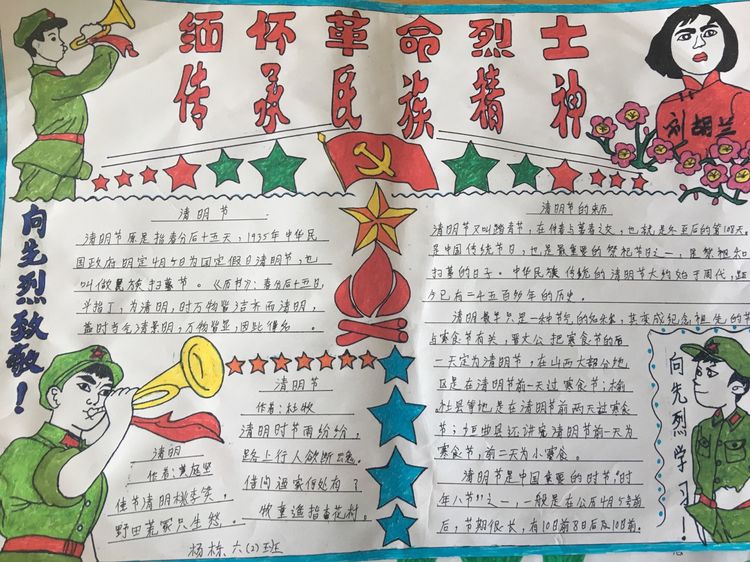 缅怀革命烈士
传承民族精神
刘胡兰
向先烈致敬！
清明节
清明节原是指春分后十五天，1935年中华民
国政府明定4月5日为国定假日清明节，也
叫做民族扫墓节。《历书》：春分后十五日，
斗指丁，为清明，时万物皆洁齐而清明，
盖时当气清景明，万物皆显，因此得名。
清明节的来历
清明节又叫踏青节，在仲春与暮春之交，也就是冬至后的第108天。
是中国传统节日，也是最重要的祭祀节日之一，是祭祖和
扫墓的日子。中华民族传统的清明节大约始于周代，距
今已有二千五百多年的历史。
清明最早只是一种节气的名称，其变成纪念祖先的节
与寒食节有关，晋文公把寒食节的后
一天定为清明节，在山西大部分地
区是在清明节前一天过寒食节；榆
社县等地是在清明节前两天过寒食
节；垣曲县还讲究清明节前一天为
寒食节，前二天为小寒食。
清明节是中国重要的时节"时
年八节"之一，一般是在公历4月5号前
后，节期很长，有10日前8日后及10日前
清明节
作者：杜牧
清明时节雨纷纷，
路上行人欲断魂。
借问酒家何处有？
牧童遥指杏花村。
清明
作者：黄庭坚
佳节清明桃李笑，
野田荒冢只生愁。
杨栋 六(2)班
向先烈学习！